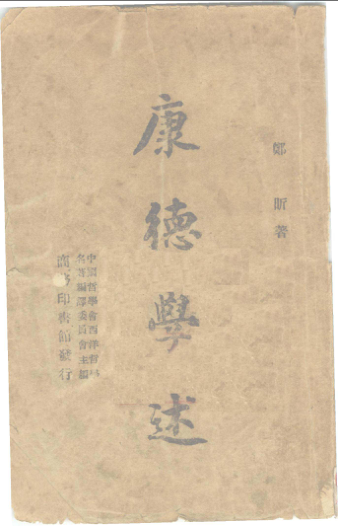 鄭昕著
康德學述
中國哲學會西洋哲學
名著編譯委員會主編
商務印書館發行